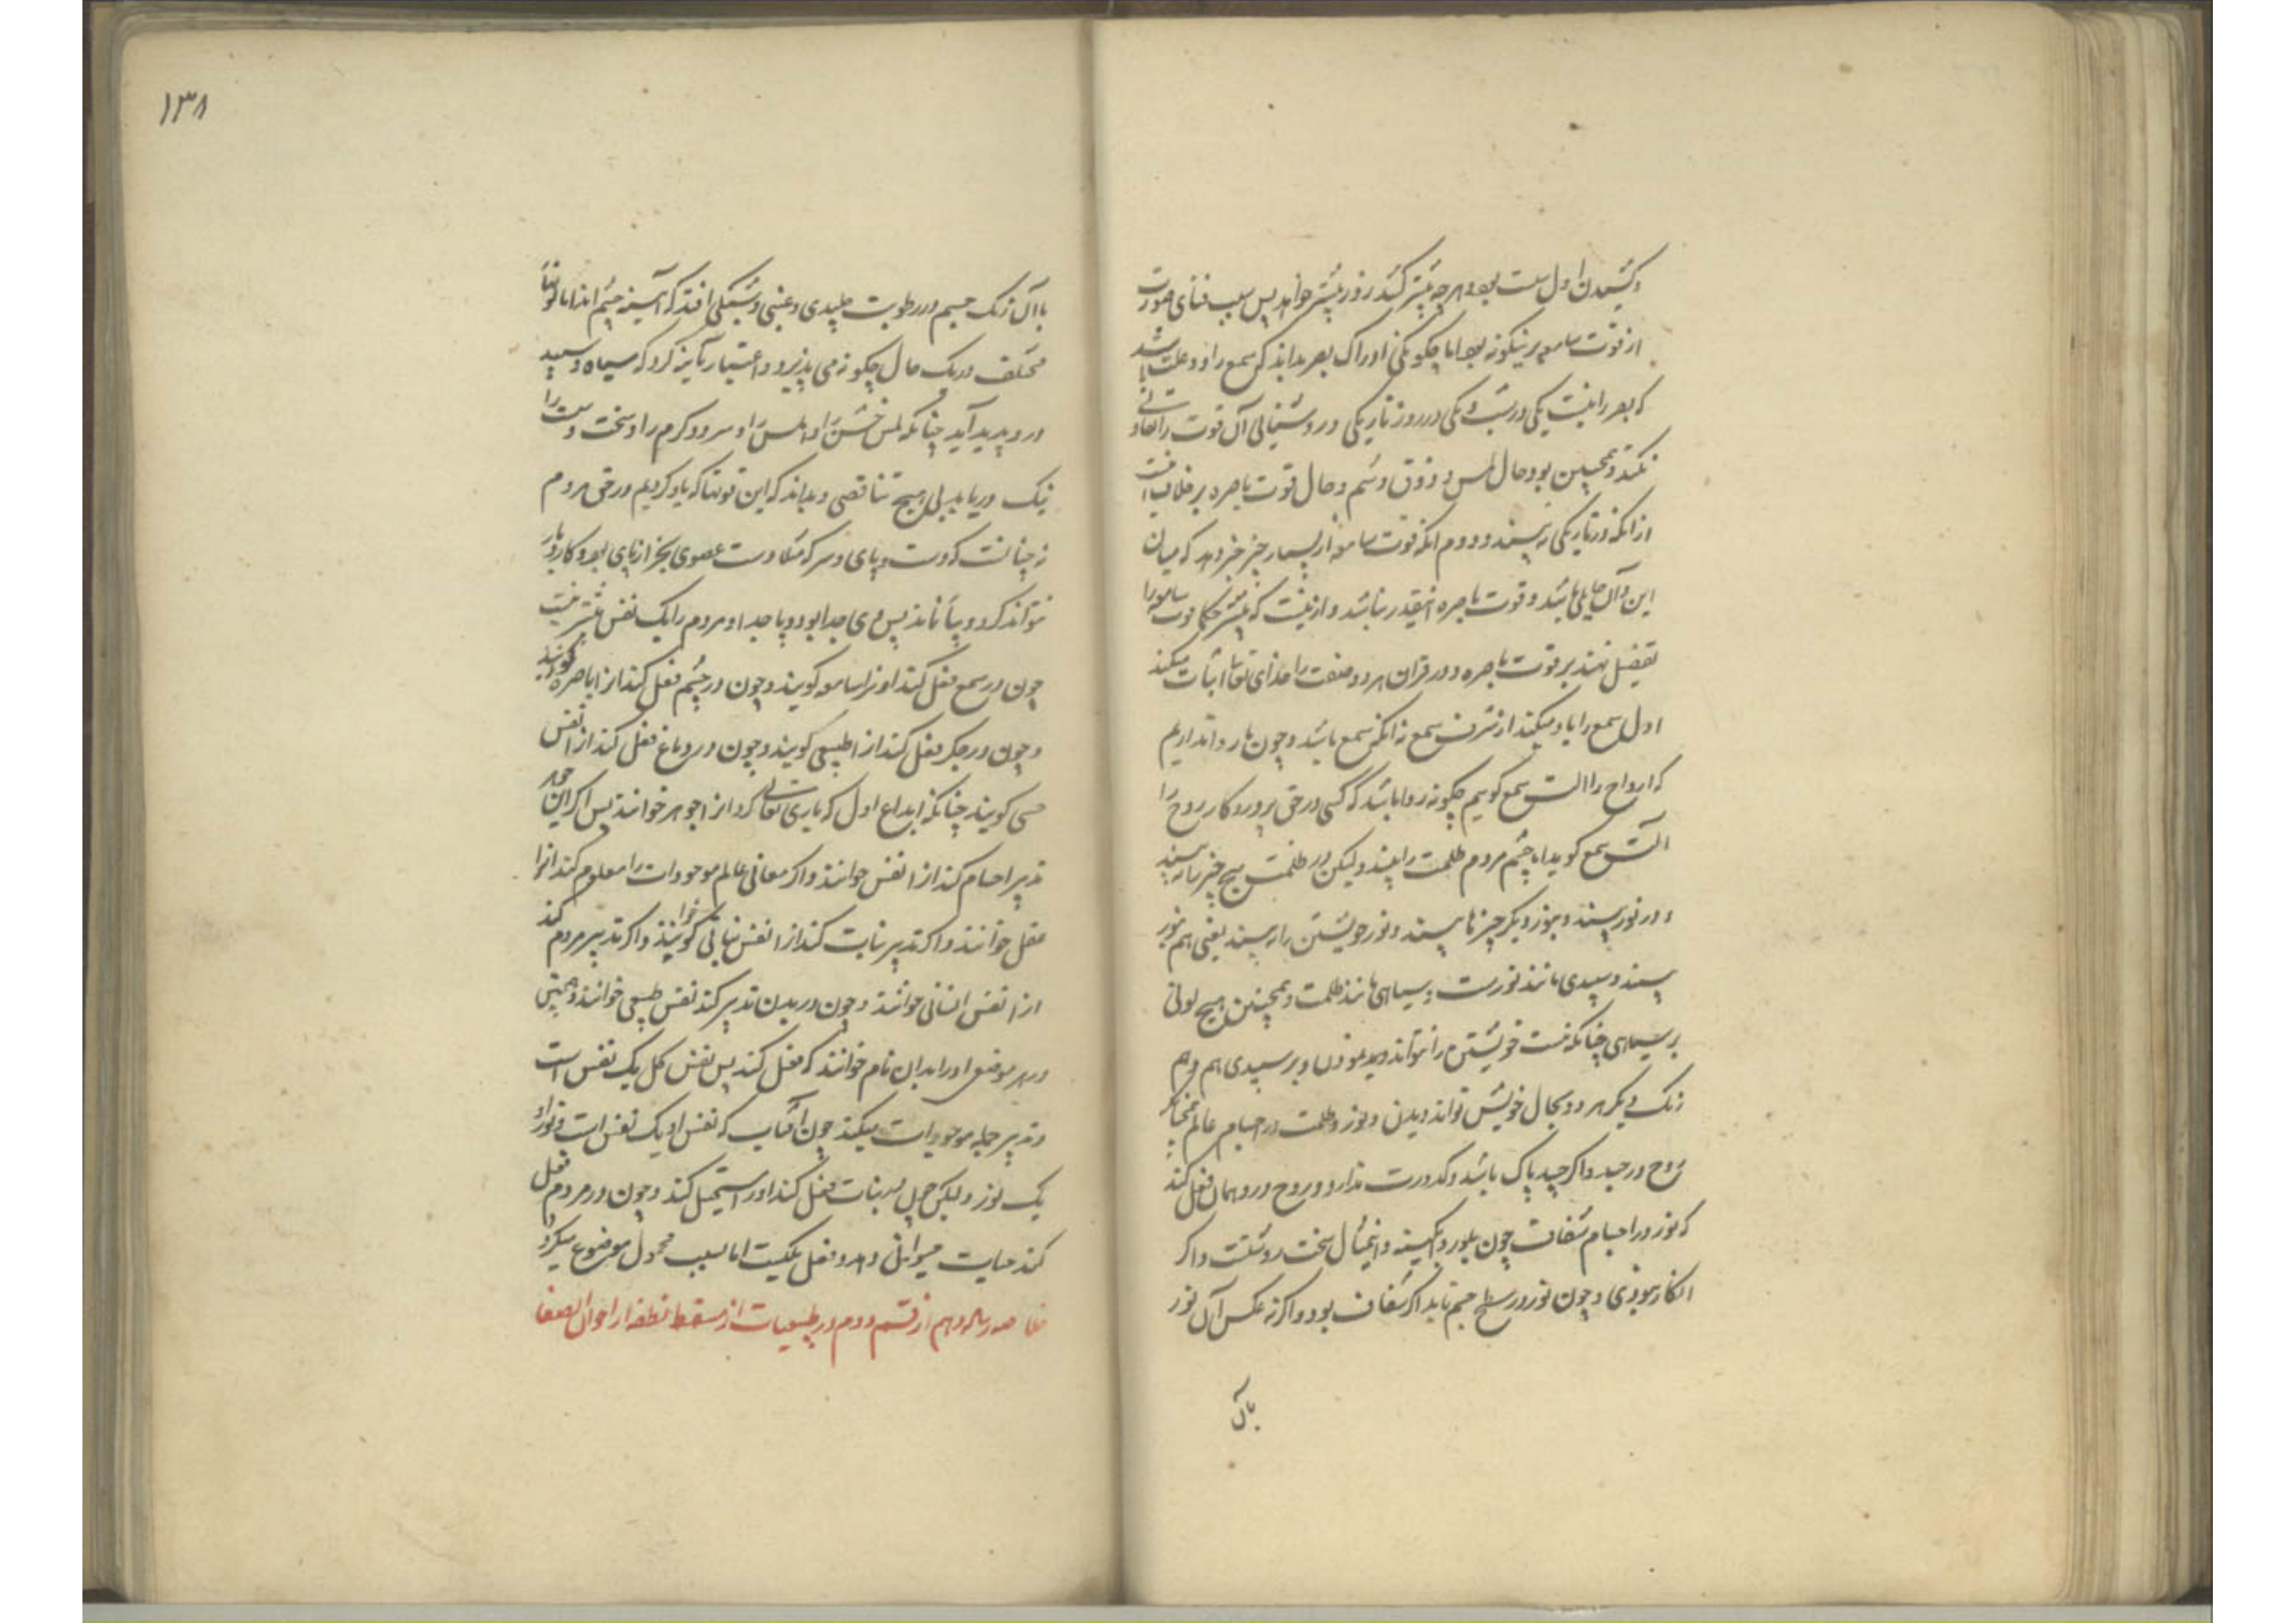 و کشیدن اول سست بود و هر چه بیشتر کشد زور بیشتر خواهد پس سبب فنای صورت
از قوت سامعه برینگونه بود اما چگونگی ادراک بصر بداند که سمع را دو علت باشد
که بصر را نیست یکی در شب و یکی در روز تاریکی و روشنائی آن قوت را تفاوتی
نکند و همچنین بود حال لمس و ذوق و شم و حال قوت باصره بر خلاف است
از انکه در تاریکی نه بیند و دوم انکه قوت سامعه از بسیار چیز خبر دهد که میان
این و آن حایلی باشد و قوت باصره اینقدر نباشد و ازینست که بیشتر حکما قوت سامعه را
تفضیل نهند بر قوت باصره و در قران هر دو صفت را خدای تعالی اثبات میکند
اول سمع را یاد میکند از شرف سمع نه انکس سمع باشد و چون ما روا نداریم
که ارواح را الت سمع گویم چگونه روا باشد که کسی در حق پروردگار روح را
الت سمع گوید اما چشم مردم ظلمت را بیند ولیکن در ظلمت هیچ چیز را نه بیند
و در نور بیند و بنور دیگر چیزها بیند و نور خویشتن را نه بیند یعنی هم بنور
بیند و سپیدی مانند نورست و سیاهی مانند ظلمت و همچنین هیچ لونی
بر سیاهی چنانکه هست خویشتن را نتواند دید و بر سپیدی هم
رنگ دیگر هر دو بحال خویش تواند دیدن و نور و ظلمت در اجسام عالم همچنانکه
روح در جسد و اگر جسد پاک باشد و کدورت ندارد و روح درو همان فعل کند
که نور در اجسام شفاف چون بلور و آبگینه و این مثال سخت روشنست و اگر
انکار نبودی و چون نور در سطح جسم تابد اگر شفاف بود و اگر نه عکس آن نور
باآن
۱۳۸
باآن رنگ جسم و رطوبت پلیدی و که آئینه چشم اندامها
مختلف در یک حال چگونه می پذیرد و اعتبار بآینه کرد که سیاه و سپید
درو پدید آید چنانکه لمس خشن و املس را و سرد و گرم را و سخت و سست را
نیک دریابد بی هیچ تناقضی و بداند که این قوتها که یاد کردیم در حق مردم
نه چنانست که دست و پای و سر که مثلا دست عضوی بجز از پای بود و کار
نتواند کرد و بپا نماند پس وی جدا بود و پا جدا و مردم را یک نفس بیشتر نیست
چون در سمع فعل کند او را سامعه گویند و چون در چشم فعل کند انرا باصره گویند
و چون در جگر فعل کند انرا طبیعی گویند و چون در دماغ فعل کند انرا نفس
حسی گویند چنانکه ابداع اول که باری تعالی کرد انرا جوهر خوانند پس اگر این جوهر
تدبیر اجسام کند انرا نفس خوانند و اگر معانی عالم موجودات را معلوم کند انرا
عقل خوانند و اگر تدبیر نبات کند انرا نفس نباتی گویند و اگر تدبیر مردم کند
انرا نفس انسانی خوانند و چون در بدن تدبیر کند نفس طبیعی خوانند و همچنین
در هر موضع او را بدان نام خوانند که فعل کند پس نفس کل یک نفس است
و تدبیر جمله موجودات میکند چون آفتاب که نفس او یک نفس است و نور او
یک نور ولیکن چون در نبات فعل کند او را مستحیل کند و چون در مردم فعل
کند حیات حیوانی دهد و فعل یکیست اما بسبب محمول موضوع میگردد
خلاصه رساله دهم از قسم دوم در طبیعیات از مسقط نطفه از اخوان الصفا